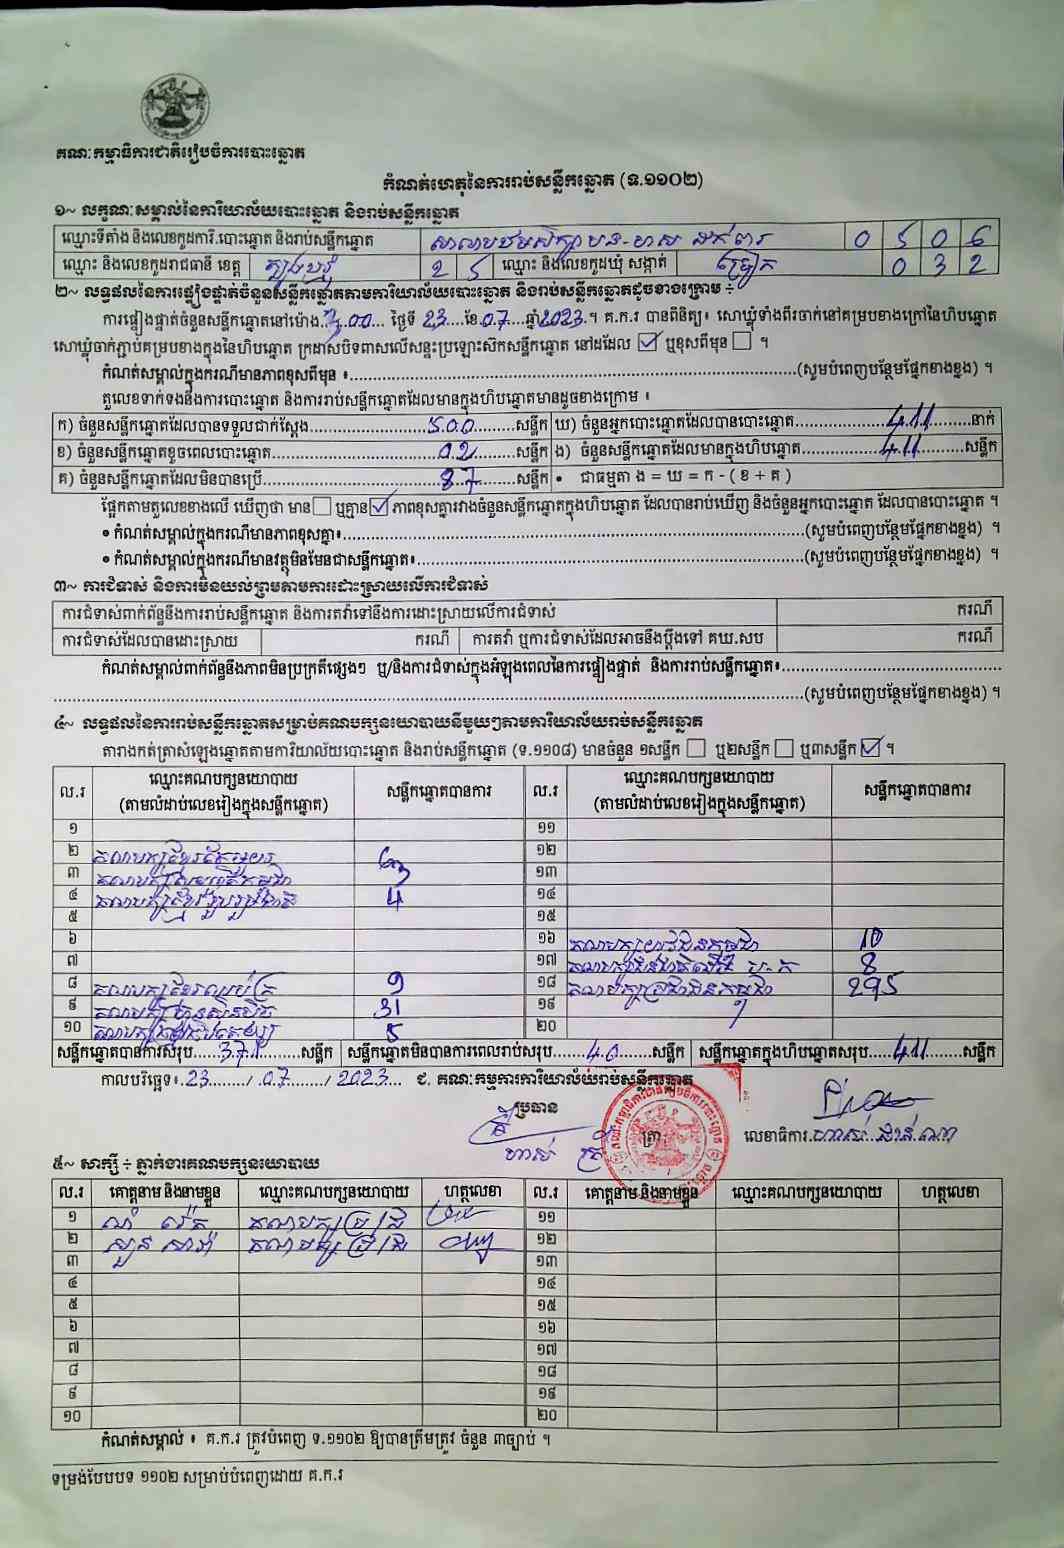 គណៈកម្មាធិការជាតិរៀបចំការបោះឆ្នោត
កំណត់ហេតុនៃការរាប់សន្លឹកឆ្នោត (ទ.១១០២)
១~ លក្ខណៈសម្គាល់នៃការិយាល័យបោះឆ្នោត និងរាប់សន្លឹកឆ្នោត
ឈ្មោះទីតាំង និងលេខកូដការិ.បោះឆ្នោត និងរាប់សន្លឹកឆ្នោត 0 5 0 6
ឈ្មោះ និងលេខកូដរាជធានី ខេត្ត ត្បូងឃ្មុំ 2 5 ឈ្មោះ និងលេខកូដឃុំ សង្កាត់ 0 3 2
២~ លទ្ធផលនៃការផ្ទៀងផ្ទាត់ចំនួនសន្លឹកឆ្នោតតាមការិយាល័យបោះឆ្នោត និងរាប់សន្លឹកឆ្នោតដូចខាងក្រោម ÷
ការផ្ទៀងផ្ទាត់ចំនួនសន្លឹកឆ្នោតនៅម៉ោង 3:00 ថ្ងៃទី 23 ខែ 07 ឆ្នាំ 2023 ។ គ.ក.រ បានពិនិត្យ៖ សោឃ្លុំទាំងពីរចាក់នៅគម្របខាងក្រៅនៃហិបឆ្នោត
សោឃ្លុំចាក់ភ្ជាប់គម្របខាងក្នុងនៃហិបឆ្នោត ក្រដាសបិទពាសលើសន្ទះប្រឡោះសិកសន្លឹកឆ្នោត នៅដដែល ☑ ឬខុសពីមុន ☐ ។
កំណត់សម្គាល់ក្នុងករណីមានភាពខុសពីមុន ៖ (សូមបំពេញបន្ថែមផ្នែកខាងខ្នង) ។
តួលេខទាក់ទងនឹងការបោះឆ្នោត និងការរាប់សន្លឹកឆ្នោតដែលមានក្នុងហិបឆ្នោតមានដូចខាងក្រោម ៖
ក) ចំនួនសន្លឹកឆ្នោតដែលបានទទួលជាក់ស្តែង 500 សន្លឹក ឃ) ចំនួនអ្នកបោះឆ្នោតដែលបានបោះឆ្នោត 411 នាក់
ខ) ចំនួនសន្លឹកឆ្នោតខូចពេលបោះឆ្នោត 02 សន្លឹក ង) ចំនួនសន្លឹកឆ្នោតដែលមានក្នុងហិបឆ្នោត 411 សន្លឹក
គ) ចំនួនសន្លឹកឆ្នោតដែលមិនបានប្រើ 87 សន្លឹក • ជាធម្មតា ង = ឃ = ក - ( ខ + គ )
ផ្អែកតាមតួលេខខាងលើ ឃើញថា មាន ☐ ឬគ្មាន ☑ ភាពខុសគ្នារវាងចំនួនសន្លឹកឆ្នោតក្នុងហិបឆ្នោត ដែលបានរាប់ឃើញ និងចំនួនអ្នកបោះឆ្នោត ដែលបានបោះឆ្នោត ។
• កំណត់សម្គាល់ក្នុងករណីមានភាពខុសគ្នា៖ (សូមបំពេញបន្ថែមផ្នែកខាងខ្នង) ។
• កំណត់សម្គាល់ក្នុងករណីមានវត្ថុមិនមែនជាសន្លឹកឆ្នោត៖ (សូមបំពេញបន្ថែមផ្នែកខាងខ្នង) ។
៣~ ការជំទាស់ និងការមិនយល់ព្រមតាមការដោះស្រាយលើការជំទាស់
ការជំទាស់ពាក់ព័ន្ធនឹងការរាប់សន្លឹកឆ្នោត និងការតវ៉ាទៅនឹងការដោះស្រាយលើការជំទាស់ ករណី
ការជំទាស់ដែលបានដោះស្រាយ ករណី ការតវ៉ា ឬការជំទាស់ដែលអាចនឹងប្តឹងទៅ គឃ.សប ករណី
កំណត់សម្គាល់ពាក់ព័ន្ធនឹងភាពមិនប្រក្រតីផ្សេងៗ ឬ/និងការជំទាស់ក្នុងអំឡុងពេលនៃការផ្ទៀងផ្ទាត់ និងការរាប់សន្លឹកឆ្នោត៖
(សូមបំពេញបន្ថែមផ្នែកខាងខ្នង) ។
៤~ លទ្ធផលនៃការរាប់សន្លឹកឆ្នោតសម្រាប់គណបក្សនយោបាយនីមួយៗតាមការិយាល័យរាប់សន្លឹកឆ្នោត
តារាងកត់ត្រាសំឡេងឆ្នោតតាមការិយាល័យបោះឆ្នោត និងរាប់សន្លឹកឆ្នោត (ទ.១១០៨) មានចំនួន ១សន្លឹក ☐ ឬ២សន្លឹក ☐ ឬ៣សន្លឹក ☑ ។
ល.រ ឈ្មោះគណបក្សនយោបាយ (តាមលំដាប់លេខរៀងក្នុងសន្លឹកឆ្នោត) សន្លឹកឆ្នោតបានការ ល.រ ឈ្មោះគណបក្សនយោបាយ (តាមលំដាប់លេខរៀងក្នុងសន្លឹកឆ្នោត) សន្លឹកឆ្នោតបានការ
១ ១១
២ ១២
៣ ១៣
៤ គណបក្សខ្មែររួបរួមជាតិ 4 ១៤
៥ ១៥
៦ ១៦ គណបក្សយុវជនកម្ពុជា 10
៧ ១៧ 8
៨ 9 ១៨ គណបក្សប្រជាជនកម្ពុជា 295
៩ គណបក្សហ៊្វុនស៊ិនប៉ិច 31 ១៩
១០ 5 ២០
សន្លឹកឆ្នោតបានការសរុប 371 សន្លឹក សន្លឹកឆ្នោតមិនបានការពេលរាប់សរុប 40 សន្លឹក សន្លឹកឆ្នោតក្នុងហិបឆ្នោតសរុប 411 សន្លឹក
កាលបរិច្ឆេទ៖ 23 / 07 / 2023 ជ. គណៈកម្មការការិយាល័យរាប់សន្លឹកឆ្នោត
ប្រធាន
ត្រា លេខាធិការ
៥~ សាក្សី ÷ ភ្នាក់ងារគណបក្សនយោបាយ
ល.រ គោត្តនាម និងនាមខ្លួន ឈ្មោះគណបក្សនយោបាយ ហត្ថលេខា ល.រ គោត្តនាម និងនាមខ្លួន ឈ្មោះគណបក្សនយោបាយ ហត្ថលេខា
១ ១១
២ ១២
៣ ១៣
៤ ១៤
៥ ១៥
៦ ១៦
៧ ១៧
៨ ១៨
៩ ១៩
១០ ២០
កំណត់សម្គាល់ ៖ គ.ក.រ ត្រូវបំពេញ ទ.១១០២ ឱ្យបានត្រឹមត្រូវ ចំនួន ៣ច្បាប់ ។
ទម្រង់បែបបទ ១១០២ សម្រាប់បំពេញដោយ គ.ក.រ